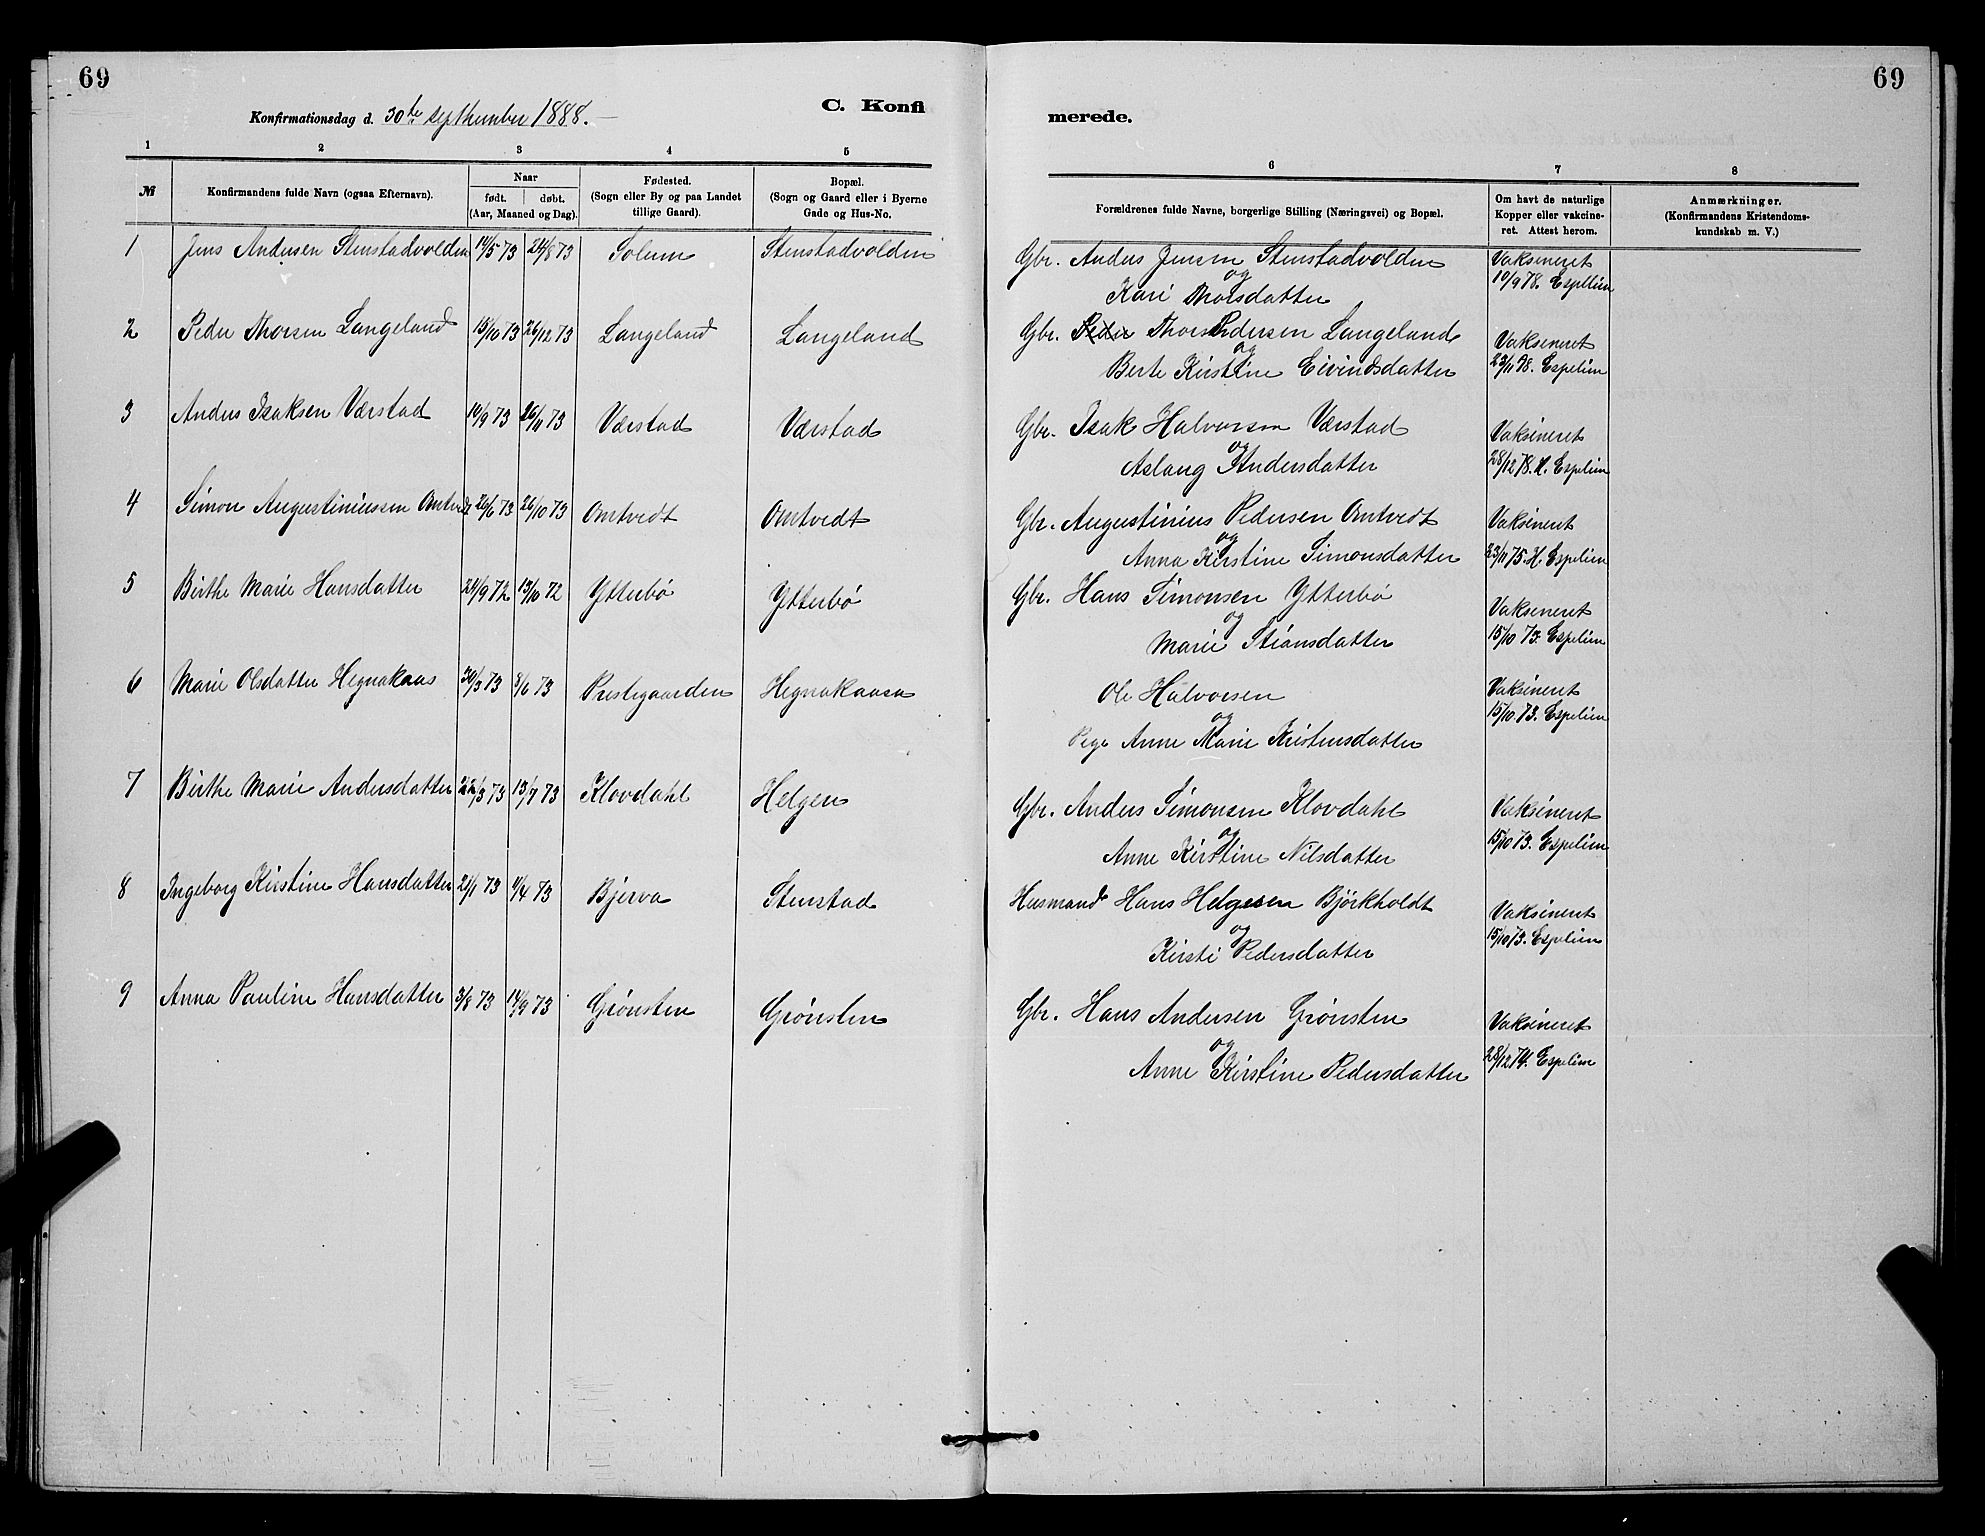 69
69
Konfirmationsdag d. 30te september 1888.
C. Konfi
merede.
1 2 3 4 5 6 7 8
№
Konfirmandens fulde Navn (ogsaa Efternavn).
Naar
født. døbt.
(Aar, Maaned og Dag).
Fødested.
(Sogn eller By og paa Landet
tillige Gaard).
Bopæl.
(Sogn og Gaard eller i Byerne
Gade og Hus-No.
Forældrenes fulde Navne, borgerlige Stilling (Næringsvei) og Bopæl.
Om havt de naturlige
Kopper eller vakcine-
ret. Attest herom.
Anmærkninger.
(Konfirmandens Kristendoms-
kundskab m. V.)
1 Jens Andersen Stenstadvolden 14/5 73 24/8 73 Solum Stenstadvolden Gbr. Anders Jensen Stenstadvolden Vaksineret
og
Kari Thorsdatter 10/9 78. Espeliem
2 Peder Thorsen Langeland 15/10 73 26/12 73 Langeland Langeland Gbr. Peder Thors Pedersen Langeland Vaksineret
og
Berte Kirstine Eivindsdatter 23/11 78. Espeliem
3 Anders Isaksen Værstad 10/9 73 26/11 73 Værstad Værstad Gbr. Isak Halvorsen Værstad Vaksineret
og
Aslaug Andersdatter 28/12 78. H. Espeliem
4 Simon Augustiniussen Omtvedt 20/6 73 26/10 73 Omtvedt Omtvedt Gbr. Augustinius Pedersen Omtvedt Vaksineret
og
Anna Kirstine Simonsdatter 23/11 75. H. Espeliem
5 Birthe Marie Hansdatter 24/9 72 13/10 72 Ytterbø Ytterbø Gbr. Hans Simonsen Ytterbø Vaksineret
og
Marie Stiansdatter 15/10 73. Espeliem
6 Marie Olsdatter Hegnakaas 30/3 73 8/6 73 Prestegaarden Hegnakaasa Ole Halvorsen Vaksineret
og 15/10 73. Espeliem
Pige Anne Marie Kristensdatter
7 Birthe Marie Andersdatter 22/3 73 13/7 73 Klovdahl Helgen Gbr. Anders Simonsen Klovdahl Vaksineret
og
Anne Kirstine Nilsdatter 15/10 73. Espeliem
8 Ingeborg Kirstine Hansdatter 21/1 73 11/4 73 Bjerva Stenstad Husmand Hans Helgesen Björkholdt Vaksineret
og
Kirsti Pedersdatter 15/10 73. Espeliem
9 Anna Pauline Hansdatter 3/8 73 14/9 73 Grønsten Grønsten Gbr. Hans Andersen Grønsten Vaksineret
og
Anne Kirstine Pedersdatter 28/12 74. Espeliem